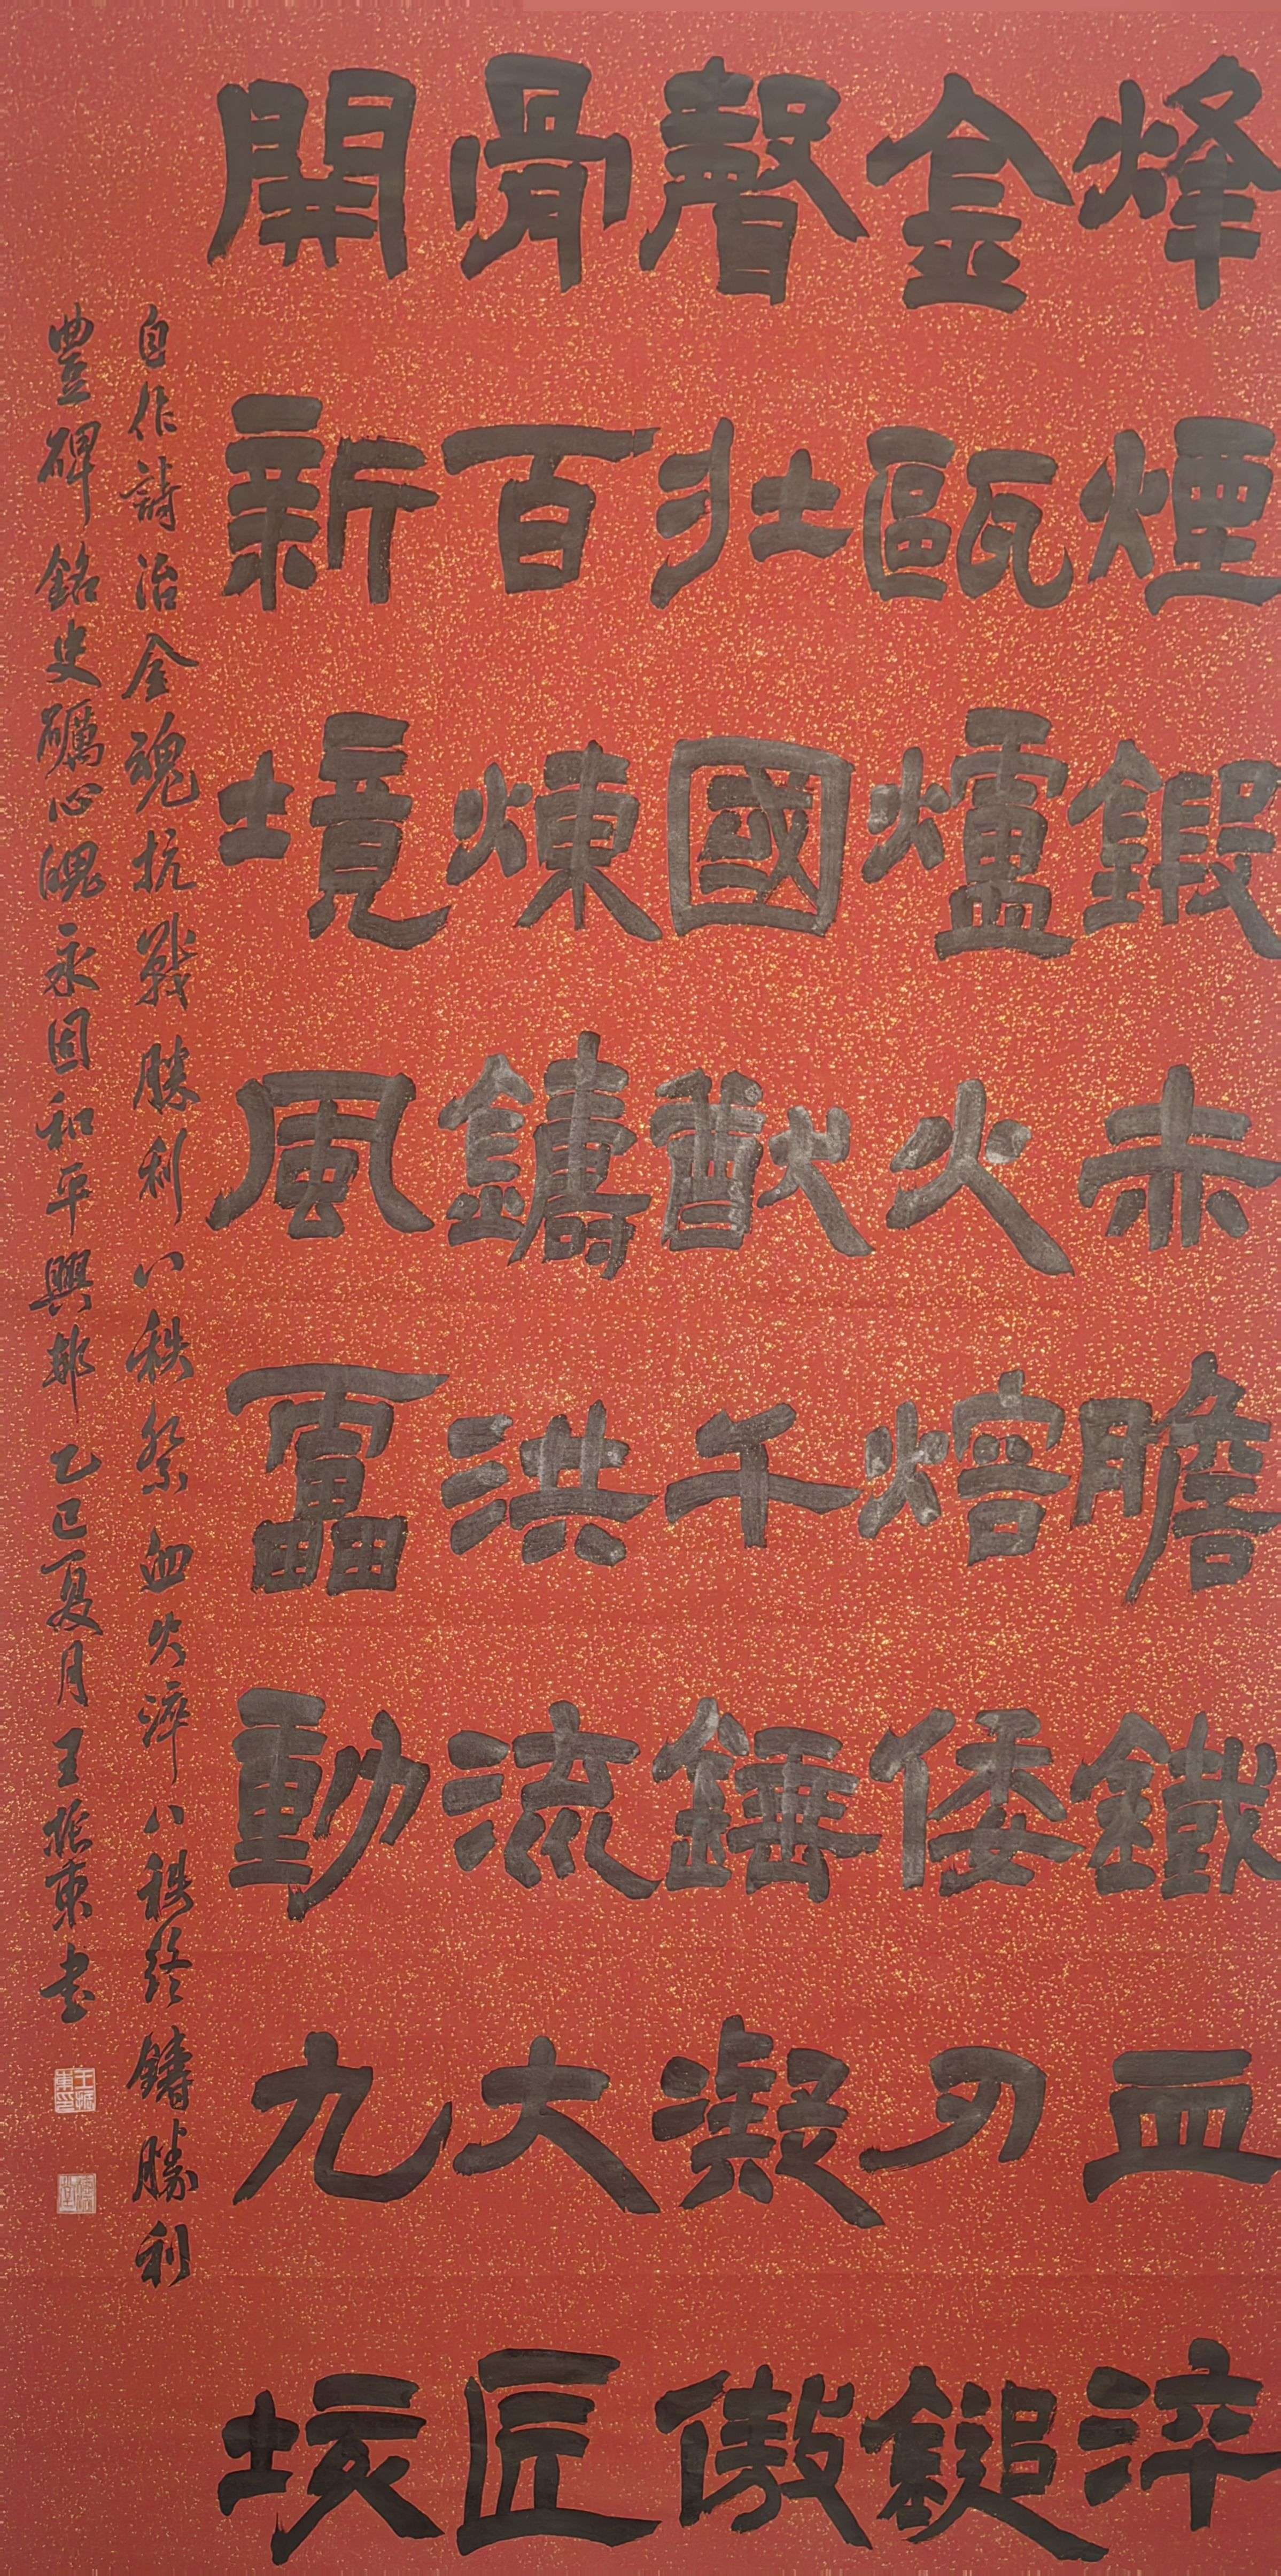 烽煙鍛赤膽鐵血淬
金甌爐火熔倭刃鎚
聲壯國猷千錘凝傲
骨百煉鑄洪流大匠
開新境風靁動九垓
自作詩冶金魂抗戰勝利八秩祭血火淬八秩終鑄勝利
豐碑銘史礪心魂永固和平興邦乙巳夏月王振東書
王振東印